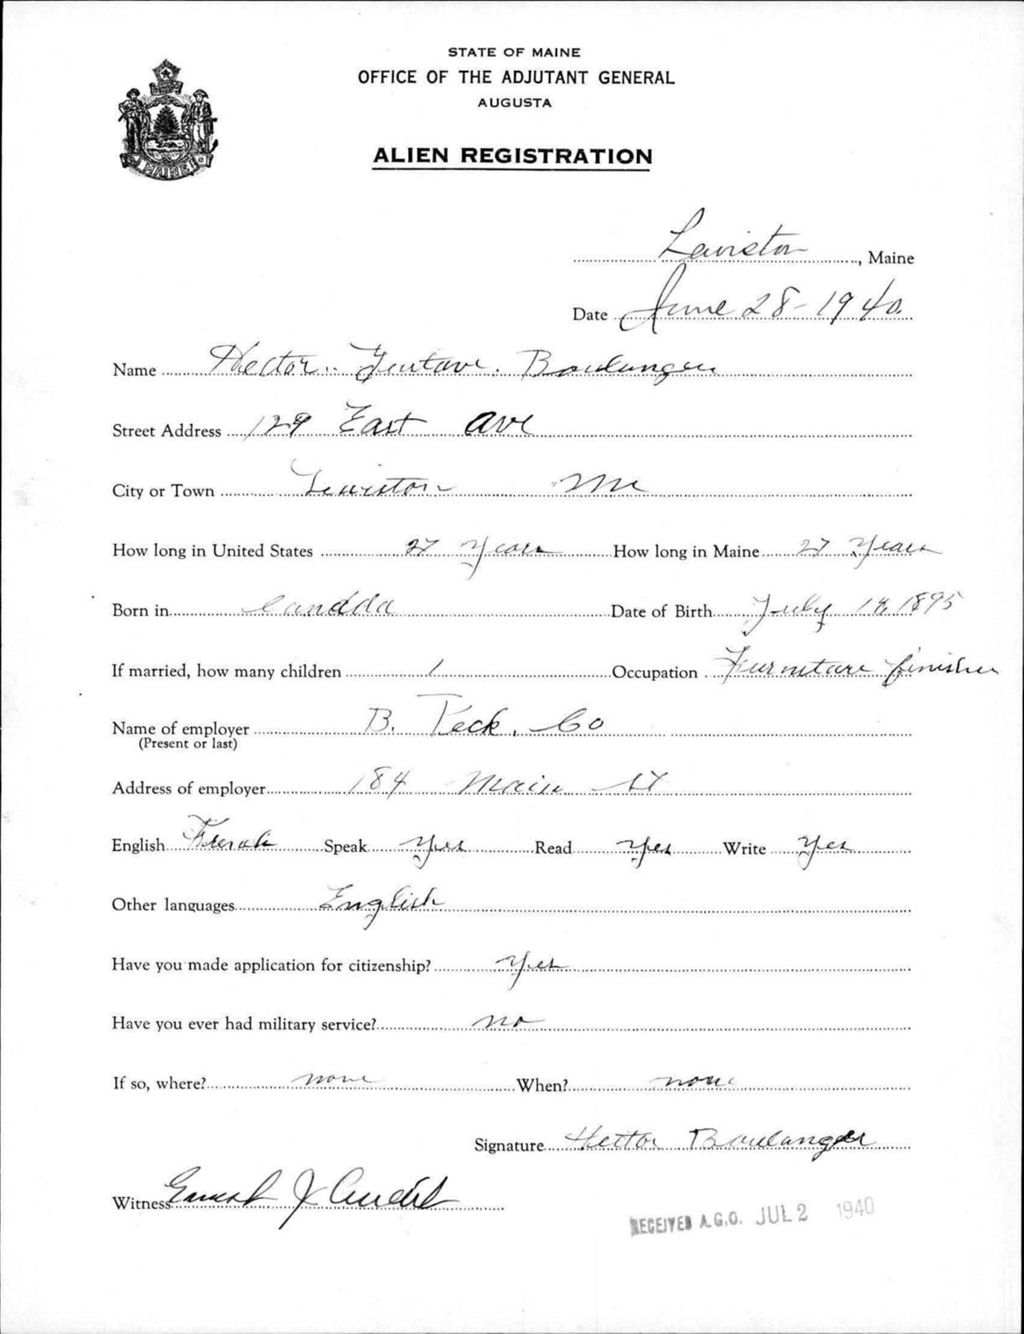 STATE OF MAINE
OFFICE OF THE ADJUTANT GENERAL
AUGUSTA
MAINE
ALIEN REGISTRATION
Lewiston, Maine
Date June 28-1940.
Name Hector Boulanger
Street Address 129 East Ave
City or Town Lewiston Me
How long in United States 27 Years How long in Maine 27 Years
Born in Canada Date of Birth July 1895
If married, how many children 1 Occupation Furniture finisher
Name of employer B. Peck. Co
(Present or last)
Address of employer 184 Main St
English French Speak Yes Read Yes Write Yes
Other languages English
Have you made application for citizenship? Yes
Have you ever had military service? no
If so, where? none When? none
Signature Hector Boulanger
Witness Ernest J
RECEIVED A.G.O. JUL 2 1940